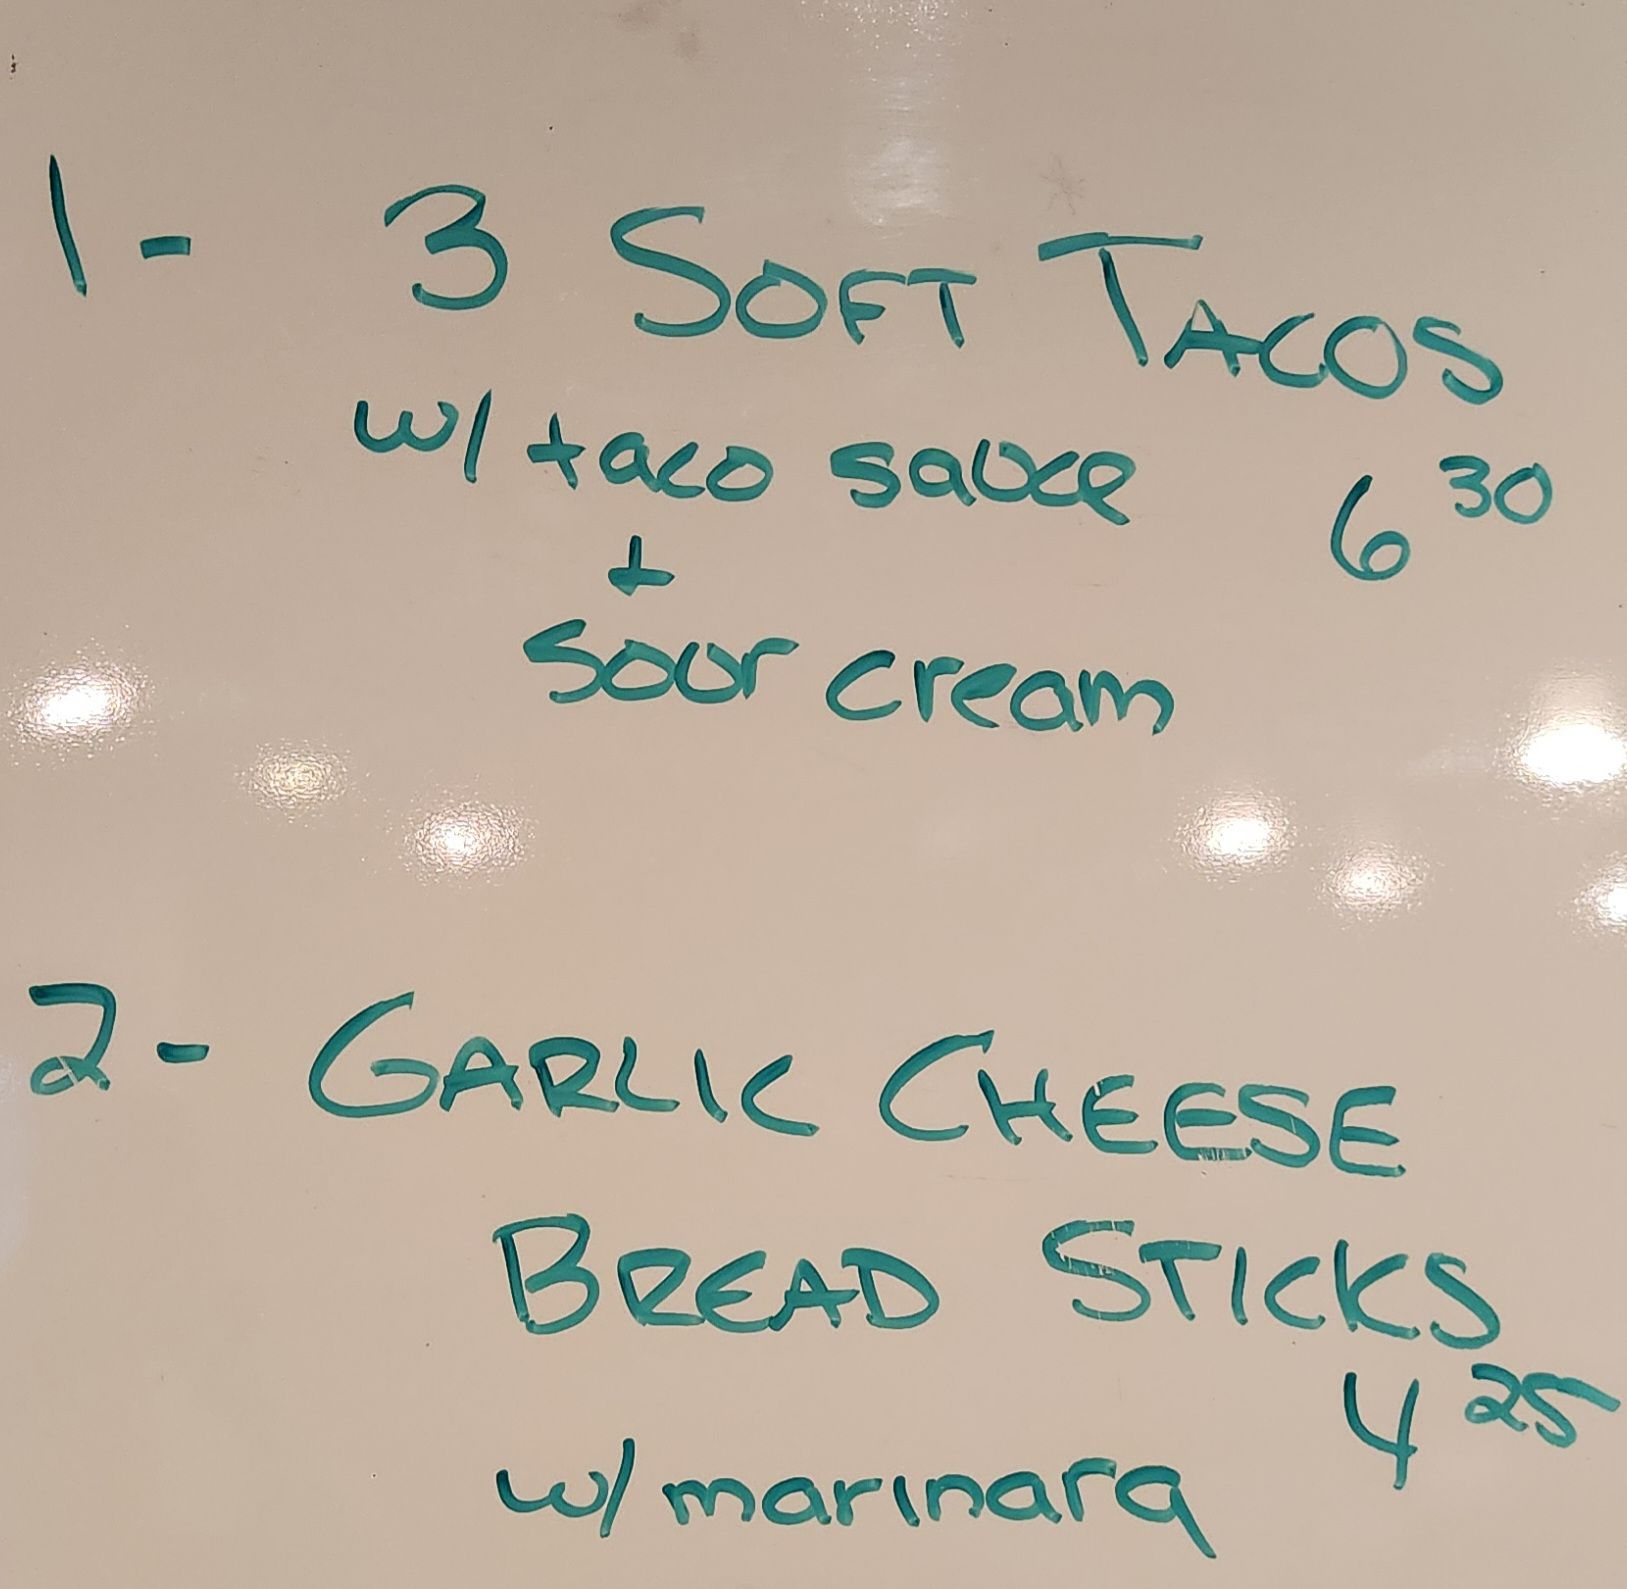 1- 3 SOFT TACOS
w/ taco sauce 6 30
+
sour cream
2- GARLIC CHEESE
BREAD STICKS
4 25
w/ marinara